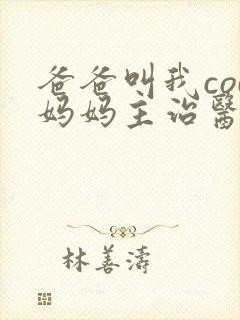 爸爸叫我co
妈妈主治醫
林善濤